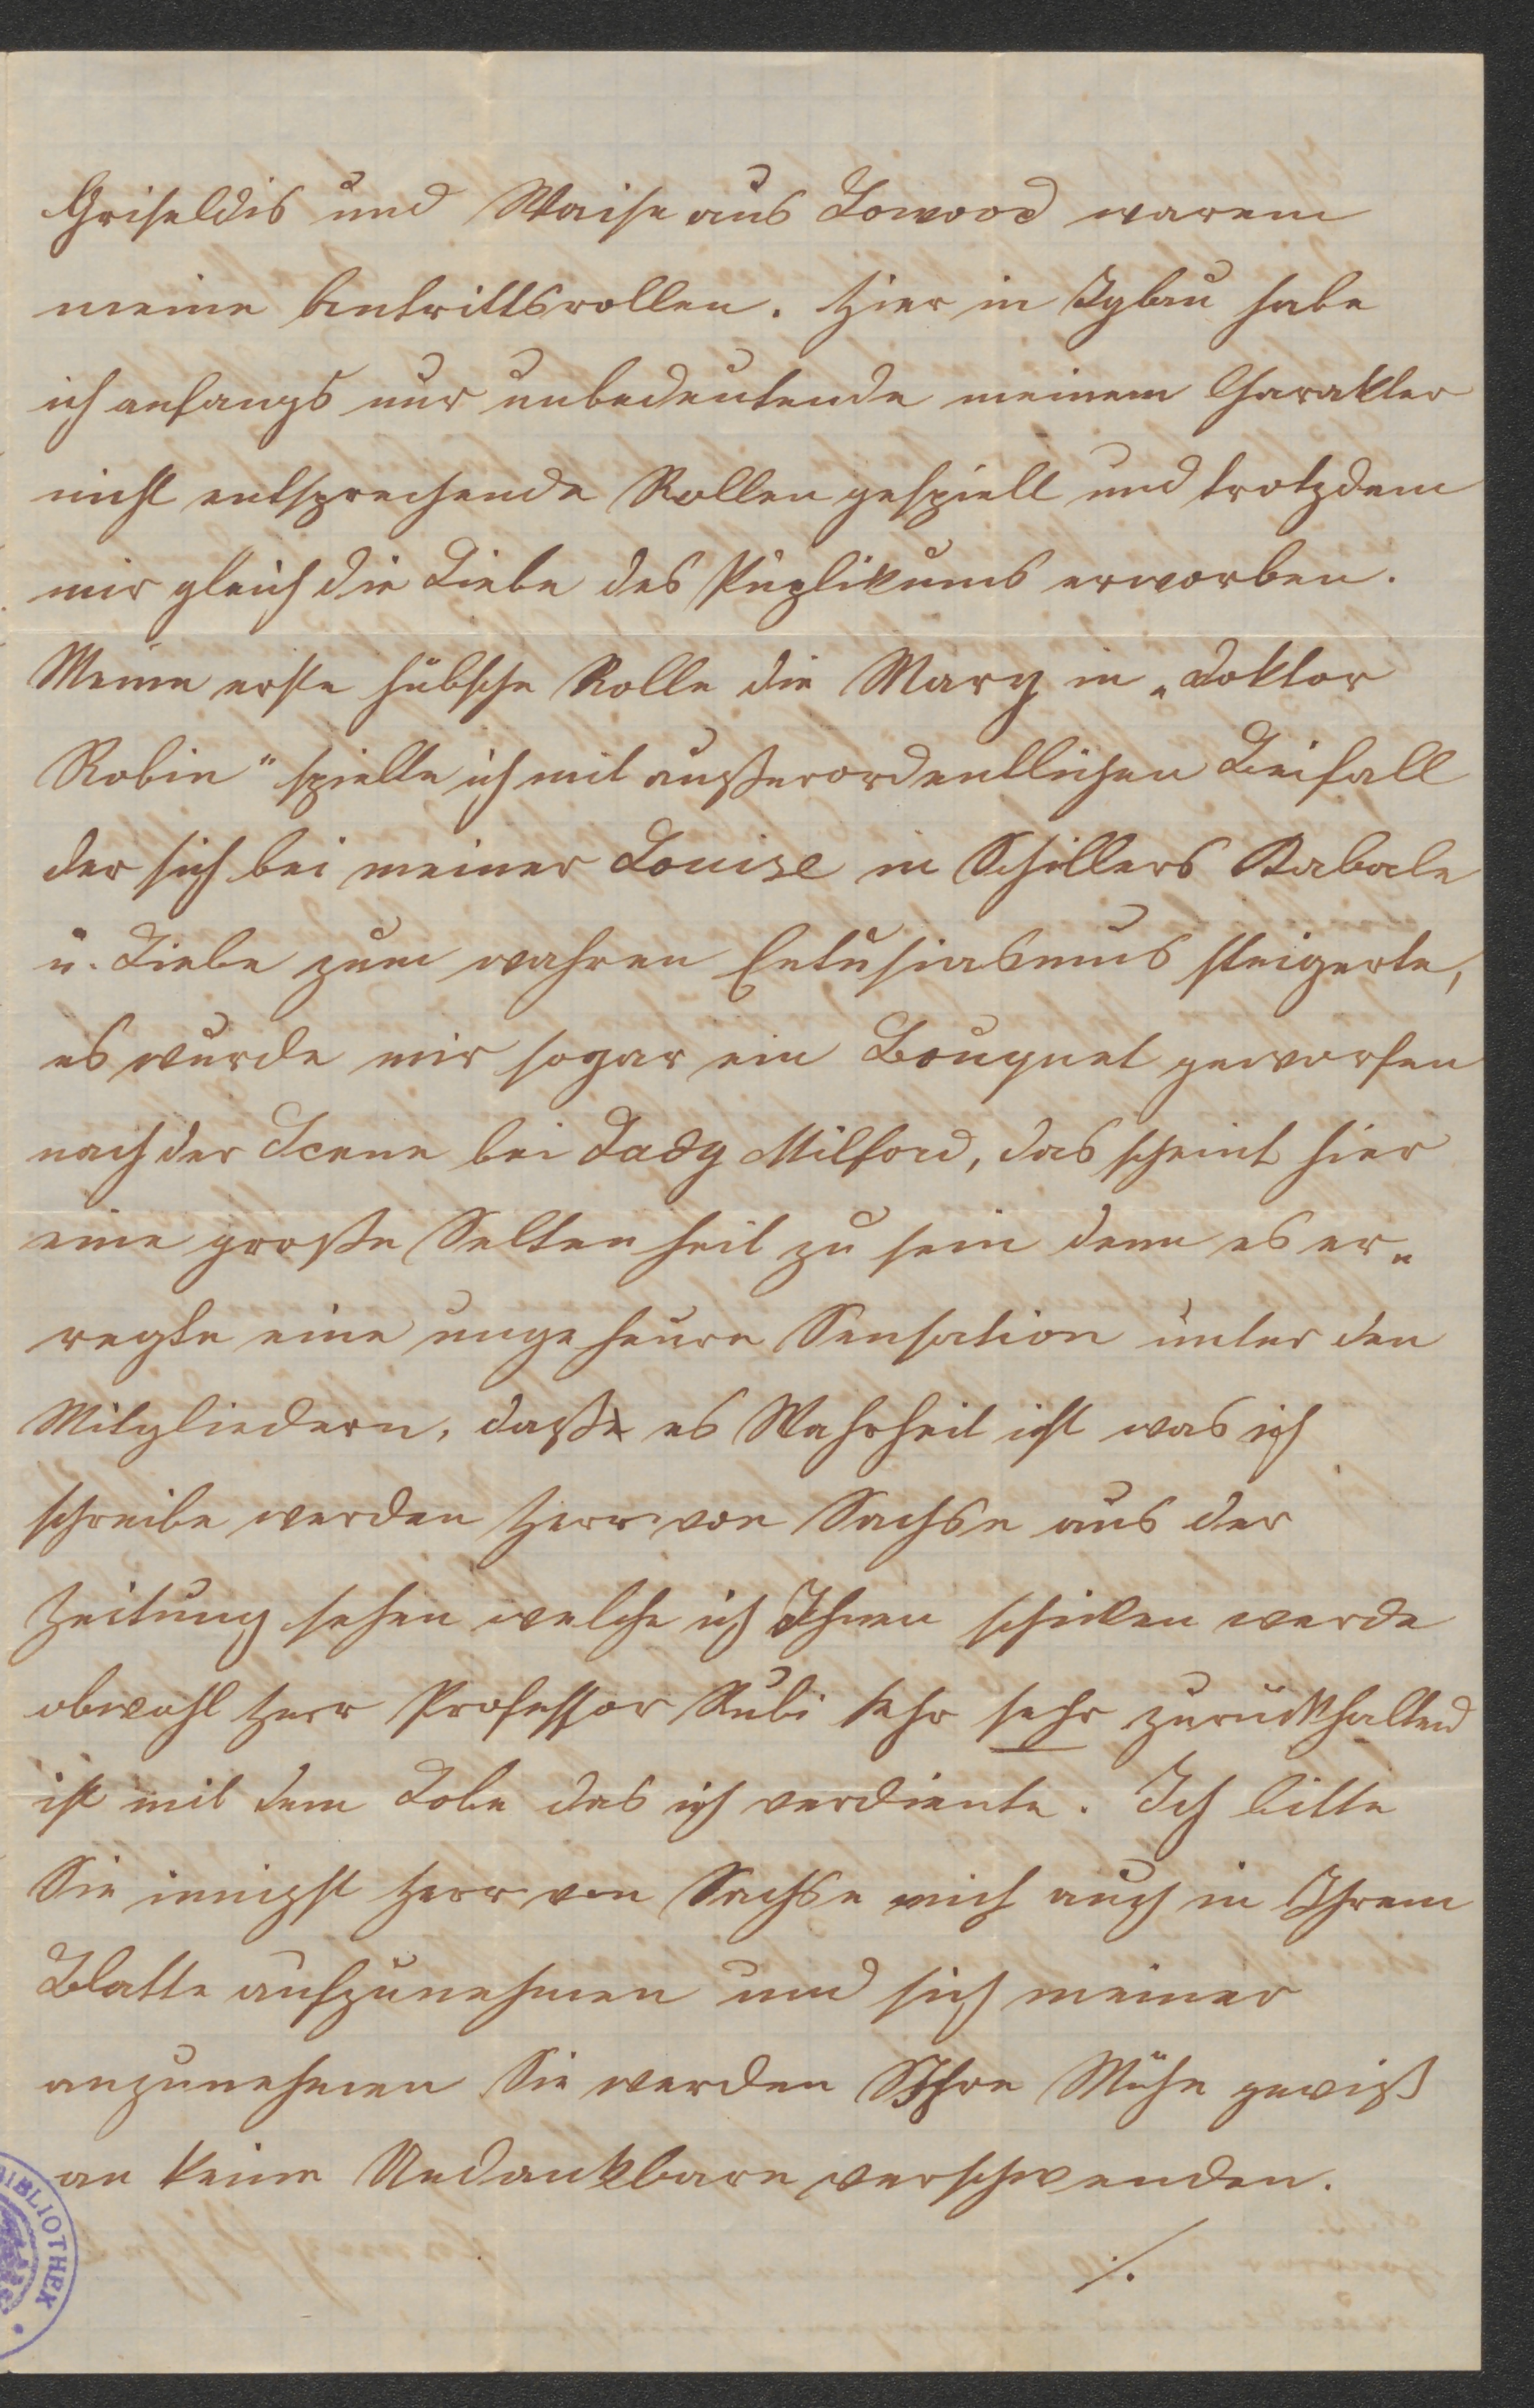 Griseldis und Waise aus Lowood waren
meine Antrittsrollen. Hier in Iglau habe
ich anfangs nur unbedeutende meinem Charakter
nicht entsprechende Rollen gespielt und trotzdem
mir gleich die Liebe des Puplikums erworben.
Meine erste hübsche Rolle die Mary in „Doktor
Robin" spielte ich mit außerordentlichen Beifall
der sich bei meiner Louise in Schillers Kabale
u. Liebe zum wahren Entusiasmus steigerte,
es wurde mir sogar ein Bouquet geworfen
nach der Scene bei Lady Milford, das scheint hier
eine große Seltenheit zu sein denn es er„
regte eine ungeheure Sensation unter den
Mitgliedern, daß es Wahrheit ist was ich
schreibe werden Herr von Sachse aus der
Zeitung sehen welche ich Ihnen schicken werde
obwohl Herr Professor Rubi sehr sehr zurückhaltend
ist mit dem Lobe das ich verdiente. Ich bitte
Sie innigst Herr von Sachse mich auch in Ihrem
Blatte aufzunehmen und sich meiner
anzunehmen Sie werden Ihre Mühe gewiß
an keine Undankbare verschwenden.
./.
BIBLIOTHEK